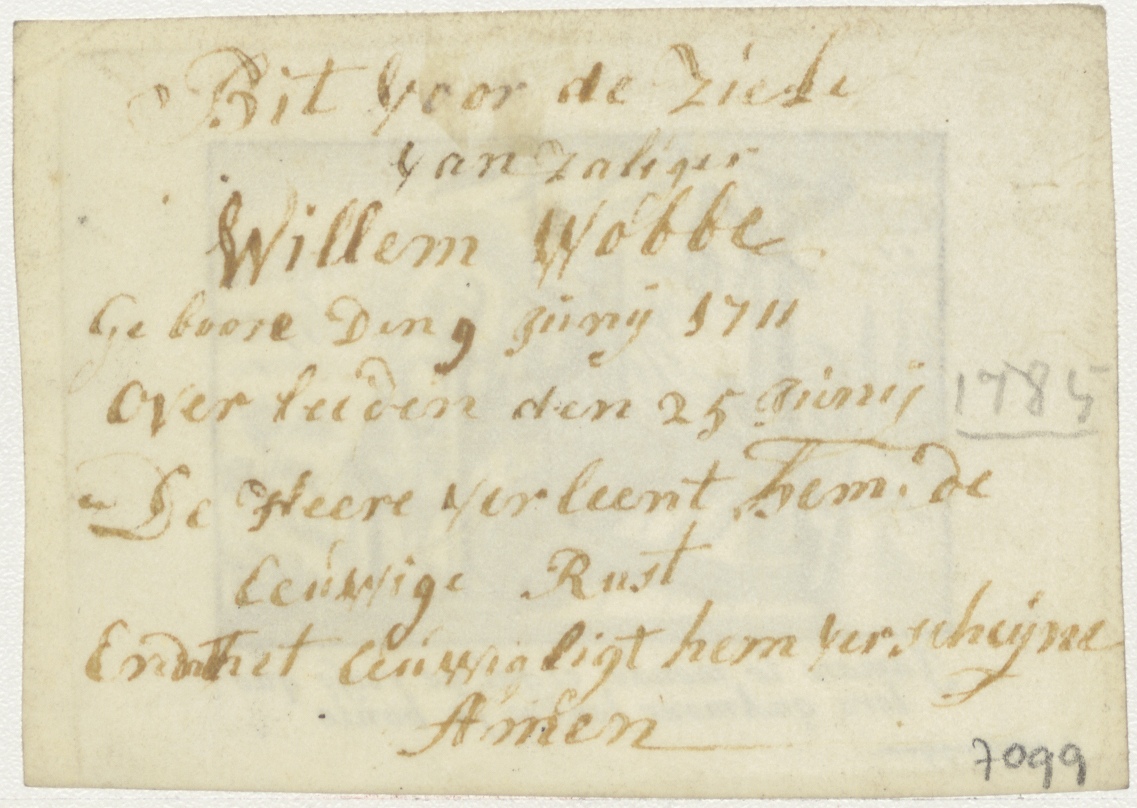 Bit voor de Ziele
van zaliger
Willem Wöbbe
Geboore Den 9 Junij 1711
overleeden den 25 Junij 1785
De Heere verleent hem de
Eeúwige Rust
Ende het Eeúwig ligt hem verscheijne
Amen
7099